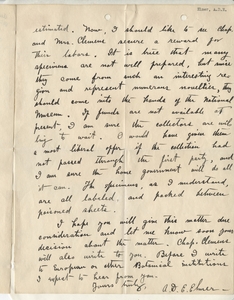 estimated. Now, I should like to see Chap.
and Mrs. Clemens secure a reward for
their labors. It is true that many
specimens are not well prepared, but since
they come from such an interesting re-
gion and represent numerous novelties, they
should come into the hands of the National
Museum. If funds are not available at
present, I am sure the collectors are wil-
ling to wait. I would have given them
a most liberal offer if the collection had
not passed through the first party, and I
am sure the home government will do all
it can. The specimens, as I understand,
are all labeled, and packed between
poisoned sheets.
I hope you will give this matter due
consideration and let me know soon your
decision about the matter. Chap. Clemens
will also write to you. Before I write
to European or other Botanical Institutions
I expect to hear from you.
Yours truly,
A. D. E. Elmer